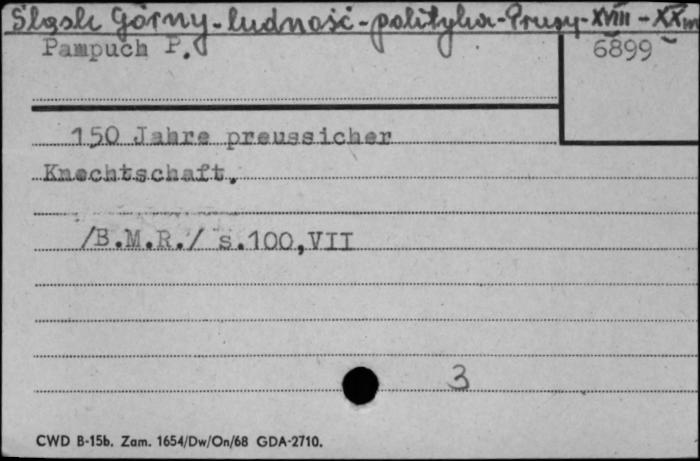 Śląsk Górny-ludność-polityka-Prusy-XVIII-XX
Pampuch P. 6899
150 Jahre preussicher
Knechtschaft.
/B.M.R./ s.100,VII
3
CWD B-15b. Zam. 1654/Dw/On/68 GDA-2710.